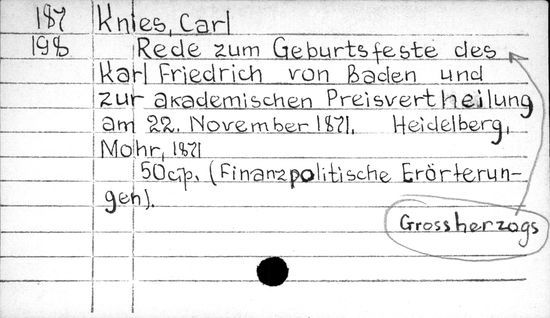 187 Knies, Carl
198 Rede zum Geburtsfeste des
Karl Friedrich von Baden und
zur akademischen Preisvertheilung
am 22. November 1871. Heidelberg,
Mohr, 1871
50 cтp. (Finanzpolitische Erörterun-
gen).
Grossherzogs